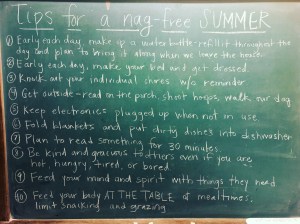 Tips for a nag-free SUMMER
① Early each day, make up a water bottle - refill it throughout the
day and plan to bring it along when we leave the house.
② Early each day, make your bed and get dressed
③ Knock out your individual chores w/o reminder
④ Get outside - read on the porch, shoot hoops, walk our dog
⑤ Keep electronics plugged up when not in use
⑥ Fold blankets and put dirty dishes into dishwasher
⑦ Plan to read something for 30 minutes.
⑧ Be kind and gracious to others even if you are
hot, hungry, tired, or bored
⑨ Feed your mind and spirit with things they need
⑩ Feed your body AT THE TABLE at mealtimes.
limit snacking and grazing